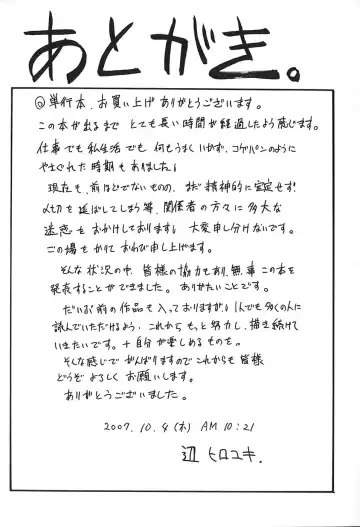 あとがき。
◎単行本、お買い上げありがとうございます。
この本が出るまでとても長い時間が経過したよう感じます。
仕事でも私生活でも何もうまくいかず、コゲパンのように
やさぐれた時期もありました!
現在も、前ほどでないものの、まだ精神的に安定せず!
〆切を延ばしてしまう等、関係者の方々に多大な
迷惑をおかけしております! 大変申し分けないです。
この場をかりておわび申し上げます。
そんな状況の中、皆様の協力もあり、無事この本を
発表することができました。ありがたいことです。
だいぶ前の作品も入っておりますが、1人でも多くの人に
読んでいただけるよう、これからもっと努力し、描き続けて
いきたいです。+自分が楽しめるものを。
そんな感じでがんばりますのでこれからも皆様
どうぞよろしくお願いします。
ありがとうございました。
2007.10.4(木) AM 10:21
辺 ヒロユキ.